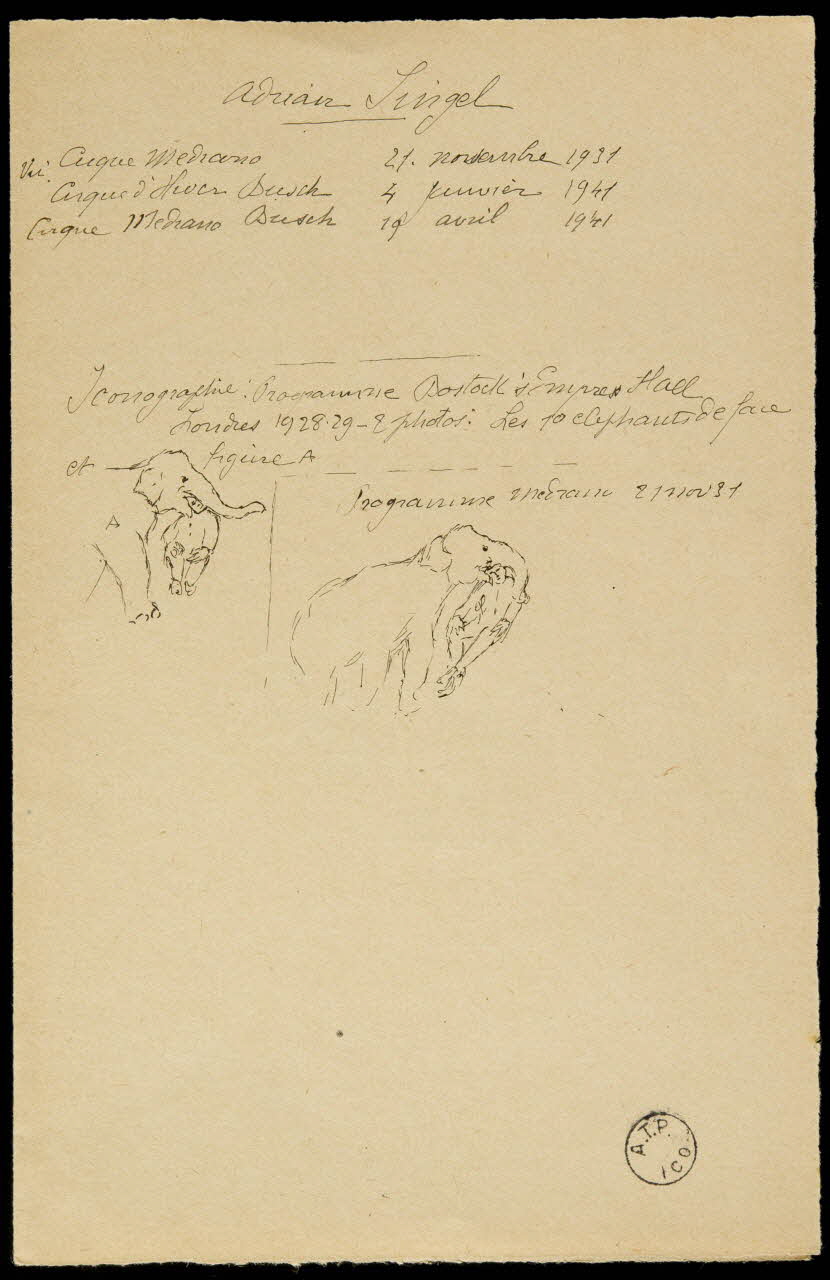 Adrian Singel
Vu: Cirque Medrano 21. novembre 1931
Cirque d'Hiver Busch 4 janvier 1941
Cirque Medrano Busch avril 1941
Iconographie: Programme Bostock's Empress Hall
Londres 1928-29 - 2 photos: Les 10 elephants de face
et figure A
A
Programme Medrano 21 nov 31
A.T.P.
ICO